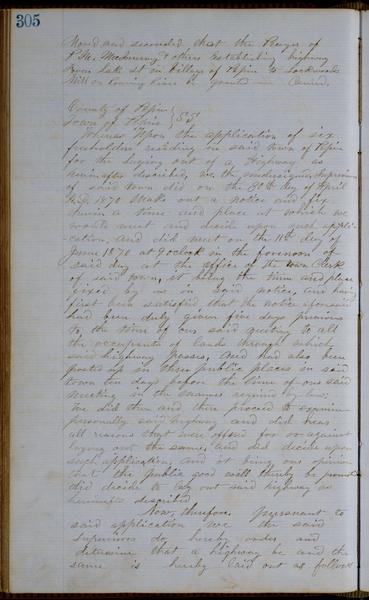 305
Mov'd and seconded that the Prayer of
P.M. & others Establishing highway
from Lake st in Village of Pepin to Lockwoods
Mill on Town line be granted — Carried.
County of Pepin }
Town of Pepin } S.S.
Whereas Upon the application of six
freeholders residing in said town of Pepin
for the laying out of a Highway as
hereinafter discribed, we, the undersigned, Supervisors
of said town did on the 30th day of April
A.D. 1870 Make out a notice and fix
therein a time and place at which we
would meet and decide upon such appli-
-cation, and did meet on the 11th day of
June 1870 at 9 oclock in the forenoon of
said day at the office of the town Clerk
of said town, it being the time and place
fixed by us in said notice, and having
first been satisfied that the notice aforesaid
had been duly given five days previous
to the time of our said meeting to all
the occupants of lands through which
said highway passes, and had also been
posted up in three public places in said
town ten days before the time of our said
meeting in the manner required by law;
We did then and there proceed to examine
personally said highway and did hear
all reasons that were offered for or against
laying out the same, and did decide upon
such application, and it being our opinion
that the public good will thereby be promoted
did decide to lay out said highway as
hereinafter described
Now, therefore, persuant to
said application we the said
Supervisors do hereby order and
determine that a highway be and the
same is hereby laid out as follows